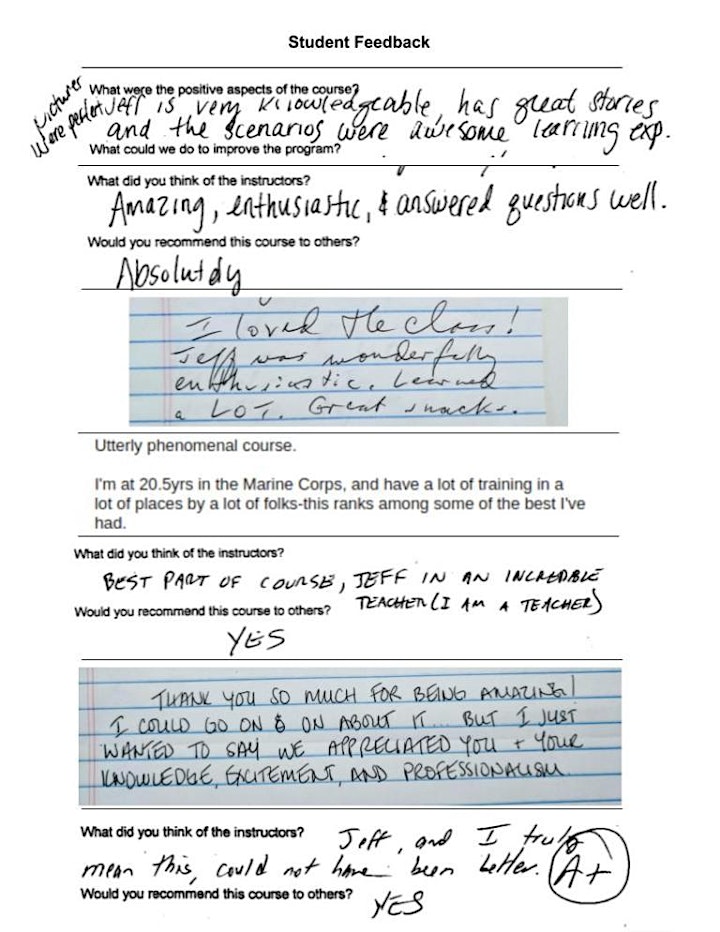 Student Feedback
What were the positive aspects of the course?
Pictures
were perfect
Jeff is very knowledgeable, has great stories
and the scenarios were awesome learning exp.
What could we do to improve the program?
What did you think of the instructors?
Amazing, enthusiastic, & answered questions well.
Would you recommend this course to others?
Absolutely
I loved the class!
Jeff was wonderfully
enthusiastic. Learned
a LOT. Great snacks.
Utterly phenomenal course.
I'm at 20.5yrs in the Marine Corps, and have a lot of training in a
lot of places by a lot of folks-this ranks among some of the best I've
had.
What did you think of the instructors?
BEST PART OF COURSE, JEFF IN AN INCREDIBLE
TEACHER (I AM A TEACHER)
Would you recommend this course to others?
YES
THANK YOU SO MUCH FOR BEING AMAZING!
I COULD GO ON & ON ABOUT IT... BUT I JUST
WANTED TO SAY WE APPRECIATED YOU + YOUR
KNOWLEDGE, EXCITEMENT, AND PROFESSIONALISM.
What did you think of the instructors?
Jeff, and I truly
mean this, could not have been better. A+
Would you recommend this course to others?
YES